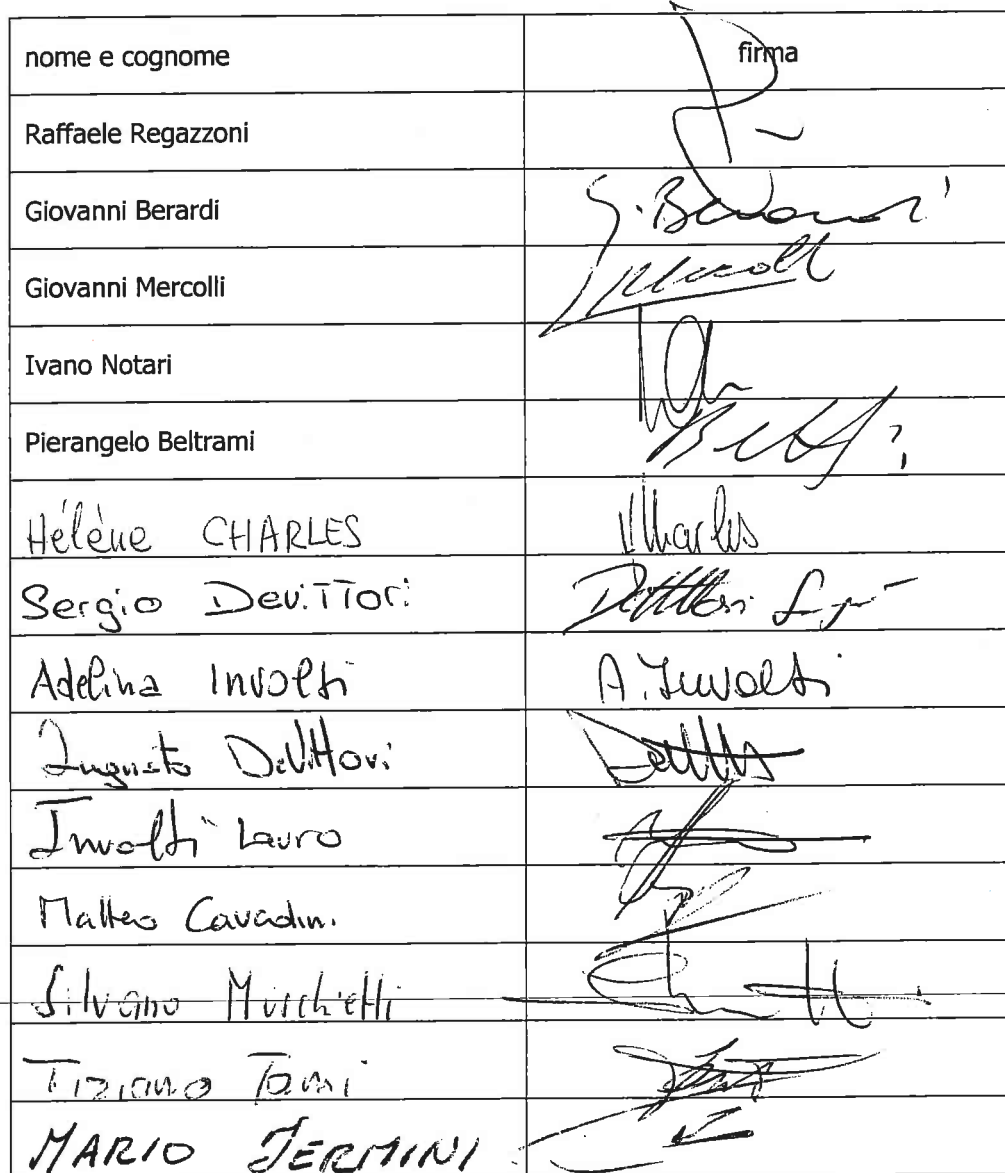 nome e cognome firma
Raffaele Regazzoni
Giovanni Berardi G. Berardi
Giovanni Mercolli Mercolli
Ivano Notari
Pierangelo Beltrami
Hélène CHARLES HCharles
Sergio Devittori Devittori Sergio
Adelina Involti A. Involti
Augusto Devittori
Involti Lauro
Matteo Cavadini
Silvano Mischietti
Tiziano Tami
MARIO JERMINI